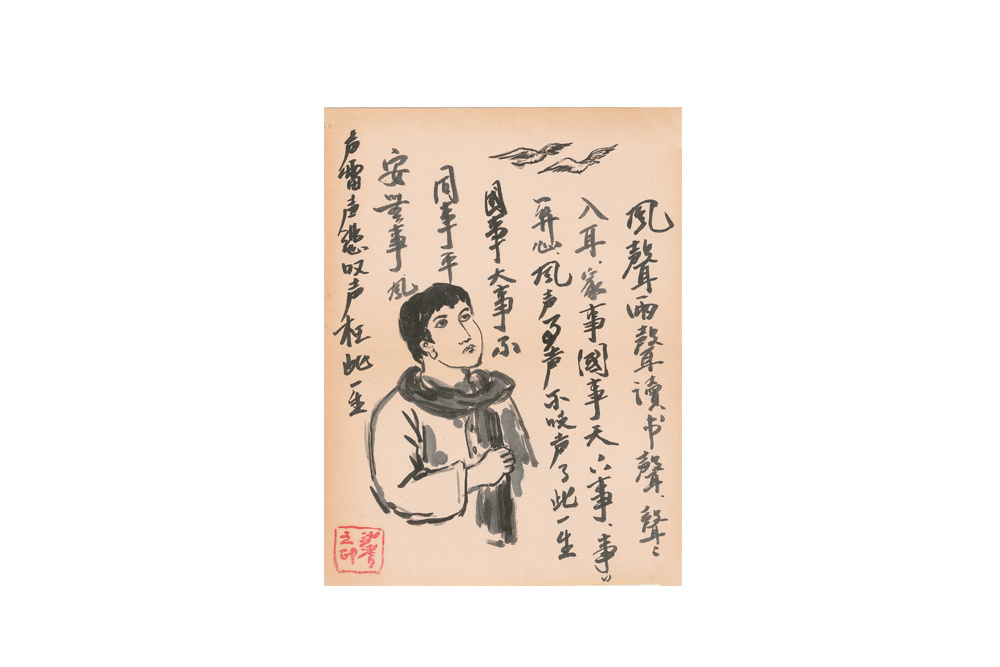 風聲雨聲讀书聲、聲〻
入耳、家事國事天下事、事〃
開心、風声雨声不哎声了此一生
國事大事不
同事平
安無事風
声雷声总叹声枉此一生
之印